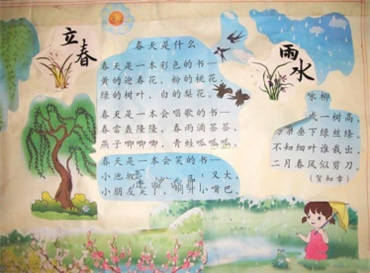 立春
春天是什么
春天是一本彩色的书—
黄的迎春花，粉的桃花，
绿的树叶，白的梨花。
春天是一本会唱歌的书—
春雷轰隆隆，春雨滴答答，
燕子唧唧唧，青蛙呱呱呱
春天是一本会笑的书—
小池 又大
小朋友 小嘴巴
雨水
咏柳
成一树高
下绿丝绦
不知细叶谁裁出
二月春风似剪刀
(贺知章)